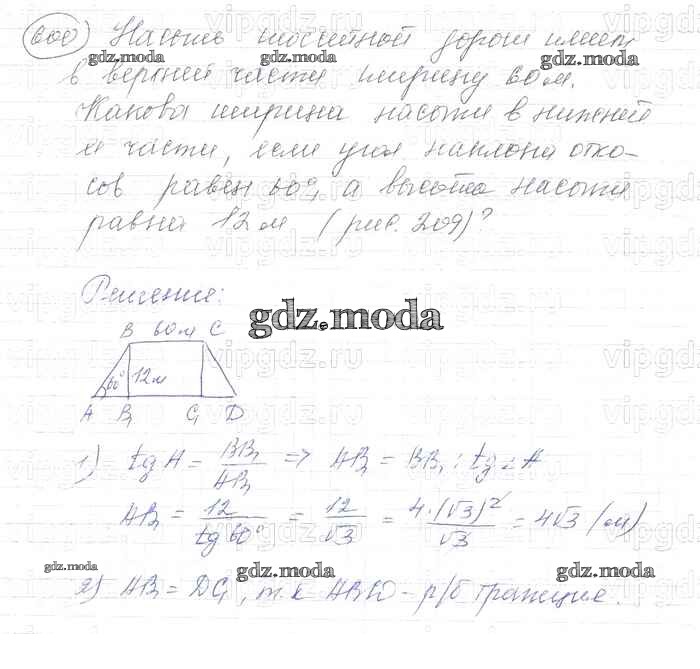 600) Насыпь шоссейной дороги имеет
в верхней части ширину 60 м.
Какова ширина насыпи в нижней
её части, если угол наклона отко-
сов равен 60°, а высота насыпи
равна 12 м (рис. 209)?
Решение:
gdz.moda
B 60м C
60° 12м
A B₁ C₁ D
1) tg A = BB₁/AB₁ => AB₁ = BB₁ : tg ∠A
AB₁ = 12/tg 60° = 12/√3 = 4·(√3)²/√3 = 4√3 (м)
2) AB₁ = DC₁, т.к ABCD - р/б трапеция.